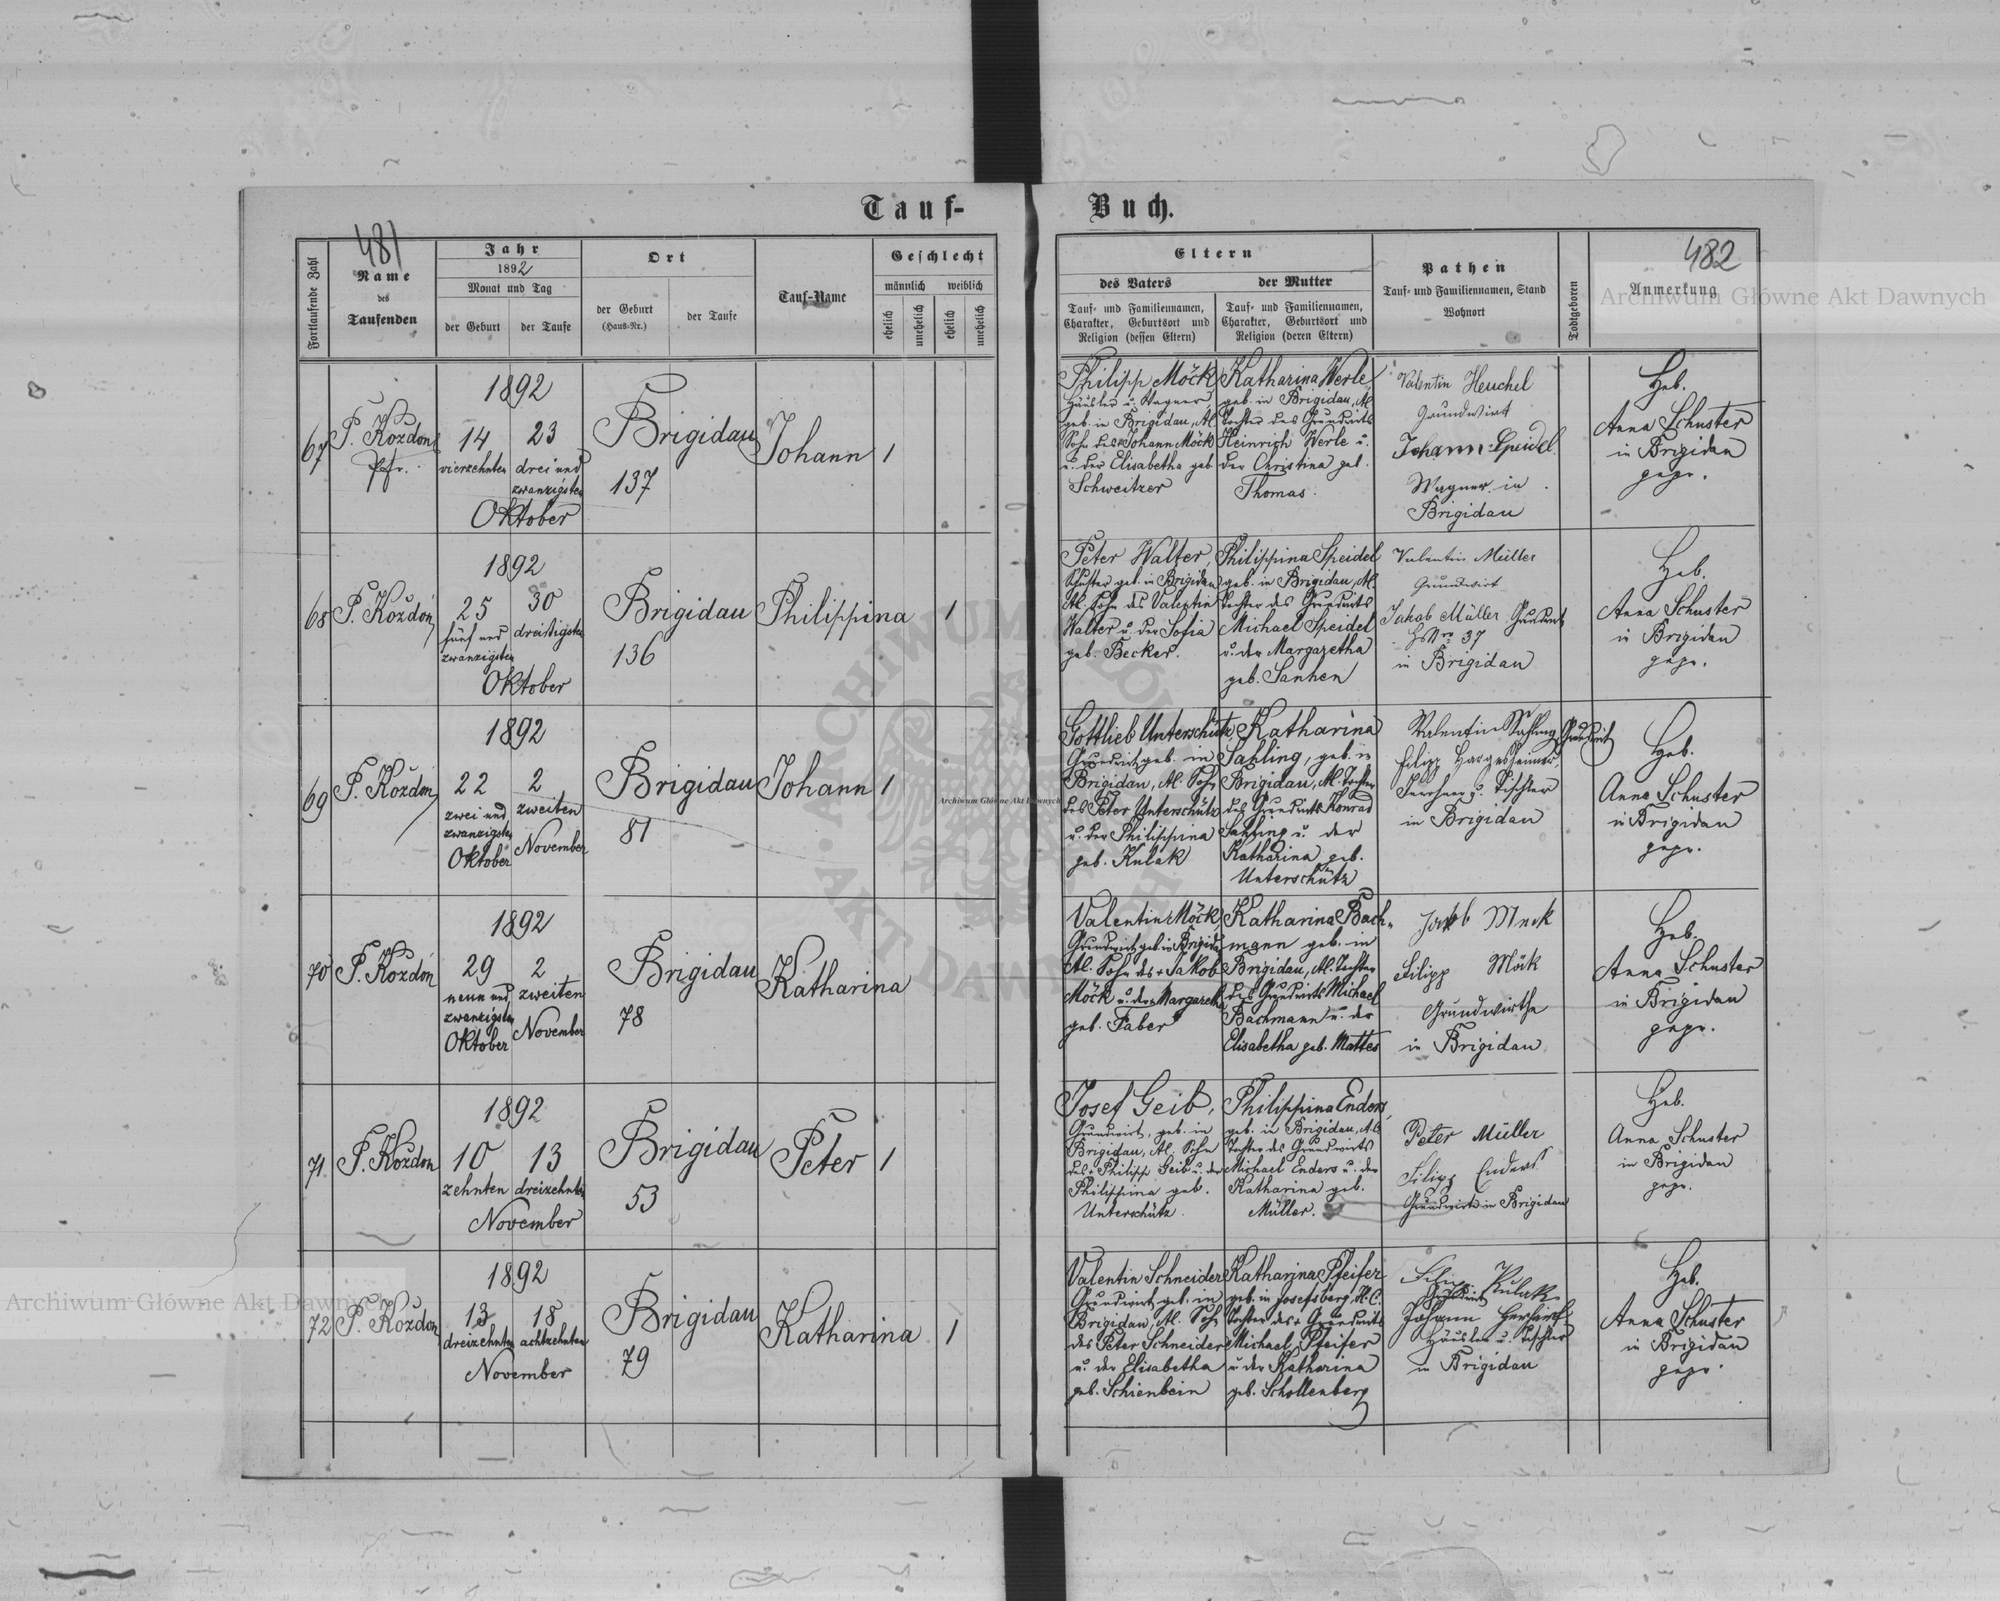 Tauf-
Buch.
481
482
Fortlaufende Zahl
Name
des
Taufenden
Jahr
1892
Monat und Tag
der Geburt
der Taufe
Ort
der Geburt
(Haus-Nr.)
der Taufe
Tauf-Name
Geschlecht
männlich
weiblich
ehelich
unehelich
ehelich
unehelich
Eltern
des Vaters
der Mutter
Tauf- und Familiennamen,
Charakter, Geburtsort und
Religion (dessen Eltern)
Tauf- und Familiennamen,
Charakter, Geburtsort und
Religion (deren Eltern)
Pathen
Tauf- und Familiennamen, Stand
Wohnort
Todtgeboren
Anmerkung
67
P. Kozdon
Pfr.
1892
14
vierzehnten
23
drei und
zwanzigsten
Oktober
Brigidau
137
Johann
1
Philipp Möck
Häusler u. Wagner,
geb. in Brigidau, Al.
Sohn des Johann Möck
u. der Elisabetha geb.
Schweitzer
Katharina Werle
geb. in Brigidau, Al.
Tochter des Grundwirts
Heinrich Werle u.
der Christina geb.
Thomas.
Valentin Heuchel
Grundwirt
Johann Speidel
Wagner in
Brigidau
Heb.
Anna Schuster
in Brigidau
gepr.
68
P. Kozdon
1892
25
fünf und
zwanzigsten
30
dreißigsten
Oktober
Brigidau
136
Philippina
1
Peter Walter,
Schuster geb. in Brigidau
Al. Sohn des Valentin
Walter u. der Sofia
geb. Becker.
Philippina Speidel
geb. in Brigidau, Al.
Tochter des Grundwirts
Michael Speidel
u. der Margaretha
geb. Sanhen
Valentin Müller
Grundwirt
Jakob Müller Grundwirt
37
in Brigidau
Heb.
Anna Schuster
in Brigidau
gepr.
69
P. Kozdon
1892
22
zwei und
zwanzigsten
Oktober
2
zweiten
November
Brigidau
81
Johann
1
Gottlieb Unterschütz
Grundwirt geb. in
Brigidau, Al. Sohn
des Peter Unterschütz
u. der Philippina
geb. Kulak
Katharina
Sahling, geb. in
Brigidau, Al. Tochter
des Grundwirts Konrad
Sahling u. der
Katharina geb.
Unterschütz
Valentin Sahling Grundwirt
Filipp Hargesheimer
u. Tischler
in Brigidau
Heb.
Anna Schuster
in Brigidau
gepr.
70
P. Kozdon
1892
29
neun und
zwanzigsten
Oktober
2
zweiten
November
Brigidau
78
Katharina
Valentin Möck,
Grundwirt geb. in Brigidau
Al. Sohn des + Jakob
Möck u. der Margaretha
geb. Faber
Katharina Bach-
mann geb. in
Brigidau, Al. Tochter
des Grundwirts Michael
Bachmann u. der
Elisabetha geb. Mattes
Jakob Meck
Filipp Möck
Grundwirthe
in Brigidau
Heb.
Anna Schuster
in Brigidau
gepr.
71.
P. Kozdon
1892
10
zehnten
13
dreizehnten
November
Brigidau
53
Peter
1
Josef Geib,
Grundwirt, geb. in
Brigidau, Al. Sohn
des Philipp Geib u. der
Philippina geb.
Unterschütz.
Philippina Enders,
geb. in Brigidau, A.C.
Tochter des Grundwirts
Michael Enders u. der
Katharina geb.
Müller.
Peter Müller
Filipp Enders
Grundwirte in Brigidau
Heb.
Anna Schuster
in Brigidau
gepr.
72
P. Kozdon
1892
13
dreizehnten
18
achtzehnten
November
Brigidau
79
Katharina
1
Valentin Schneider
Grundwirt geb. in
Brigidau, Al. Sohn
des Peter Schneider
u. der Elisabetha
geb. Schienbein
Katharina Pfeifer
geb. in Josefsberg, H.C.
Tochter des + Grundwirts
Michael Pfeifer
u. der Katharina
geb. Schollenberg
Filipp Kulak
Grundwirt
Johann
Häusler u. Tischler
in Brigidau
Heb.
Anna Schuster
in Brigidau
gepr.
Archiwum Główne Akt Dawnych
Archiwum Główne Akt Dawnych
Archiwum Główne Akt Dawnych